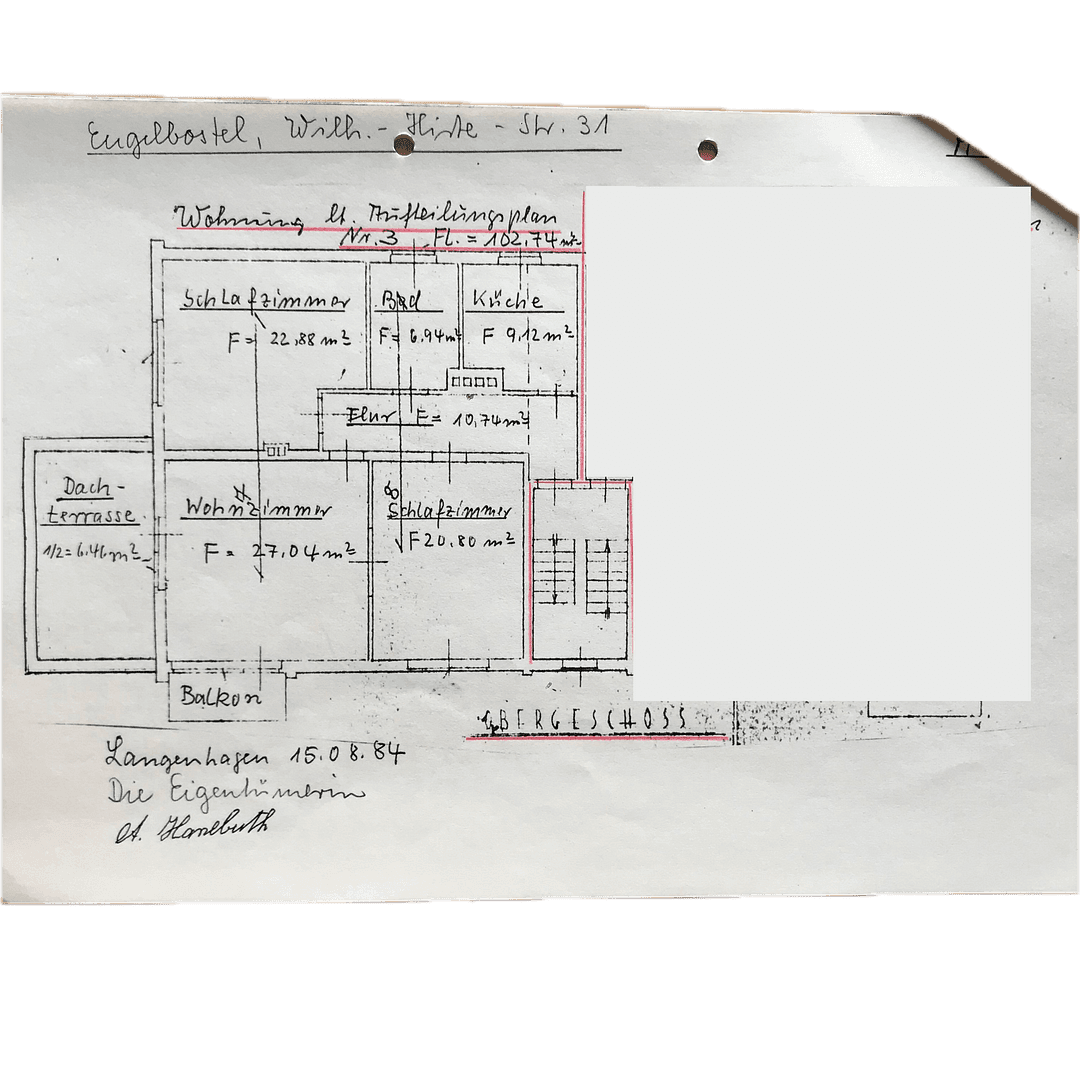 Engelbostel, Wilh.- Hirte - Str. 31
Wohnung lt. Aufteilungsplan
Nr. 3 Fl. = 102,74 m²
Schlafzimmer
F = 22,88 m²
Bad
F = 6,94 m²
Küche
F 9,12 m²
Flur F = 10,74 m²
Dach-
terrasse
1/2 = 6,46 m²
Wohnzimmer
F = 27,04 m²
Schlafzimmer
F 20,80 m²
Balkon
OBERGESCHOSS
Langenhagen 15.08.84
Die Eigentümerin